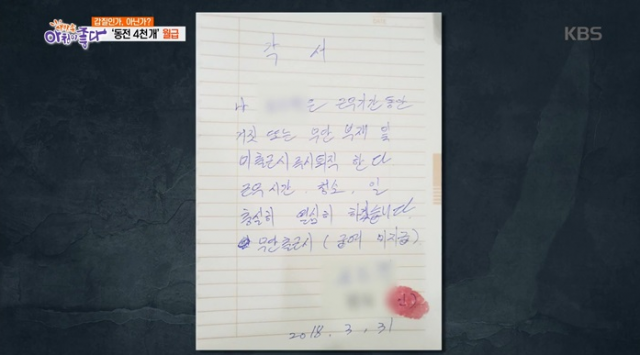 아침이 좋다
갑질인가, 아닌가?
'동전 4천개' 월급
KBS
각 서
나 은 근무기간 동안
거짓 또는 무단 부재 및
미출근시 즉시퇴직 한다
근무시간. 청소. 일
충실히 열심히 하겠습니다.
무단출근시 (급여 미지급)
2018. 3. 31